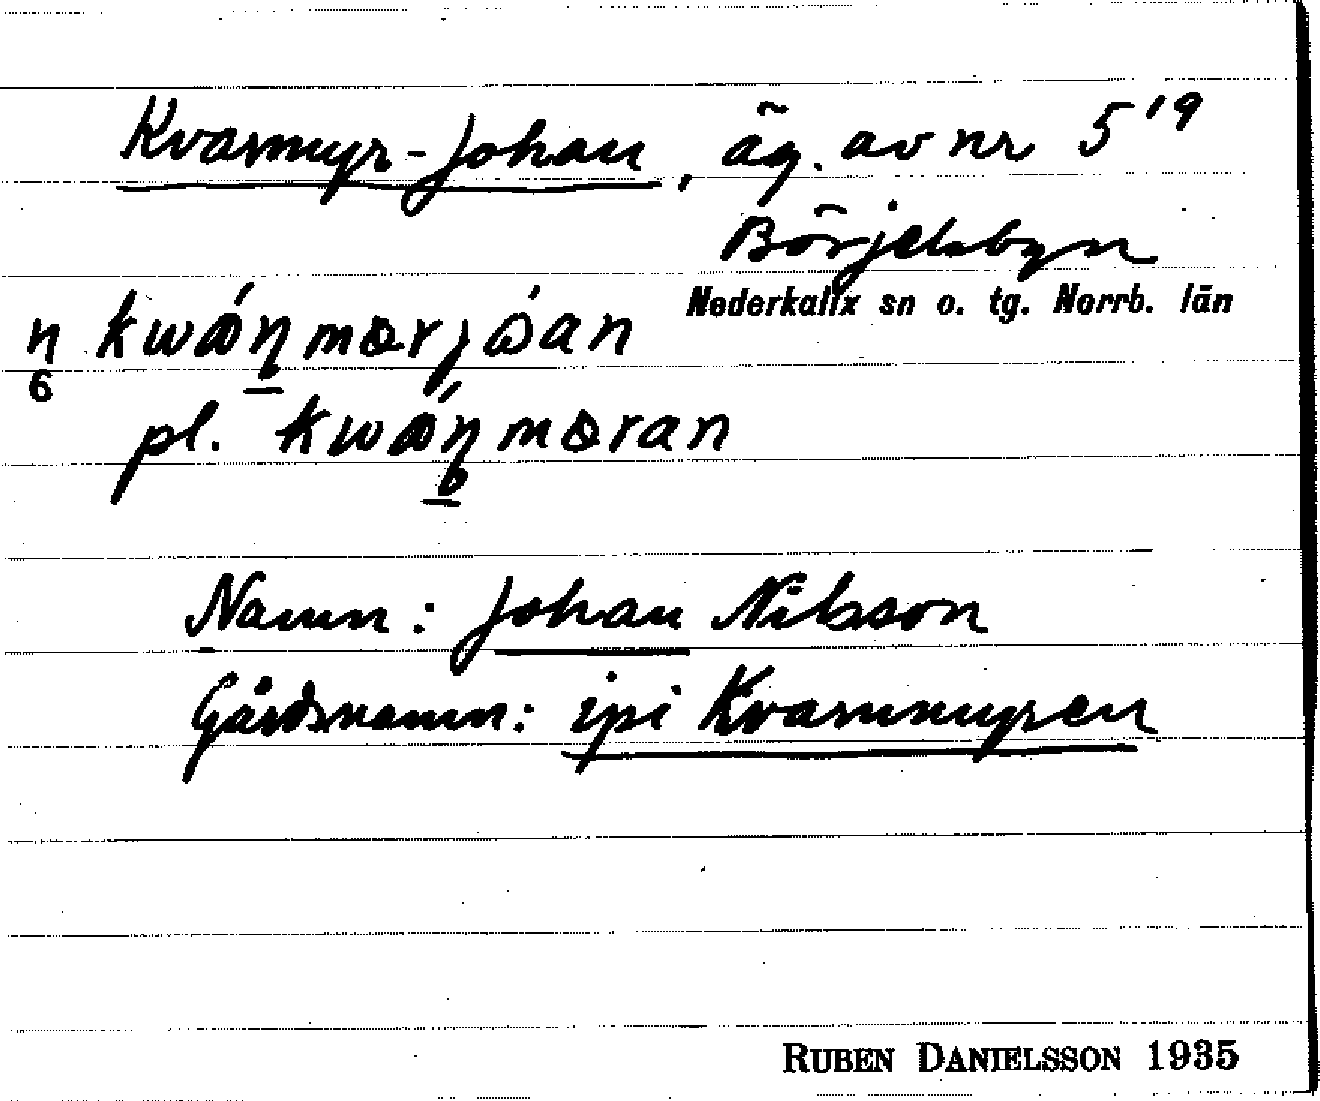 Kvarnmyr-Johan, äg. av nr 5¹⁹
Börjelsbyn
Nederkalix sn o. tg. Norrb. län
n
6
pl.
Namn: Johan Nilsson
Gårdsnamn: ipi Kvarnmyren
RUBEN DANIELSSON 1935